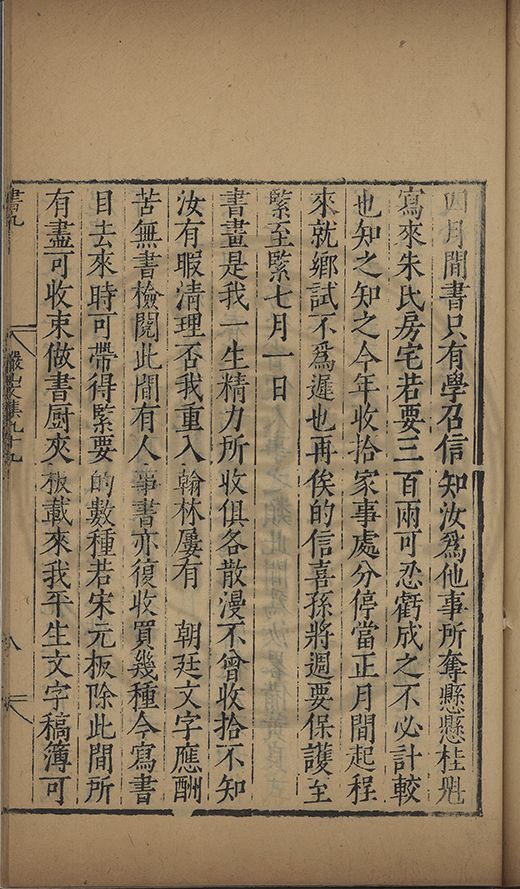 四月間書只有學召信知汝爲他事所奪懸懸桂魁
寫來朱氏房宅若要三百兩可忍虧成之不必計較
也知之知之今年收拾家事處分停當正月間起程
來就鄉試不爲遲也再俟的信喜孫將週要保護至
緊至緊七月一日
書畫是我一生精力所收俱各散漫不曾收拾不知
汝有暇清理否我重入翰林屢有　朝廷文字應酬
苦無書檢閱此間有人事書亦復收買幾種今寫書
目去來時可帶得緊要的數種若宋元板除此間所
有盡可收束做書厨夾板載來我平生文字稿簿可
書九　儼山文集九十九　八